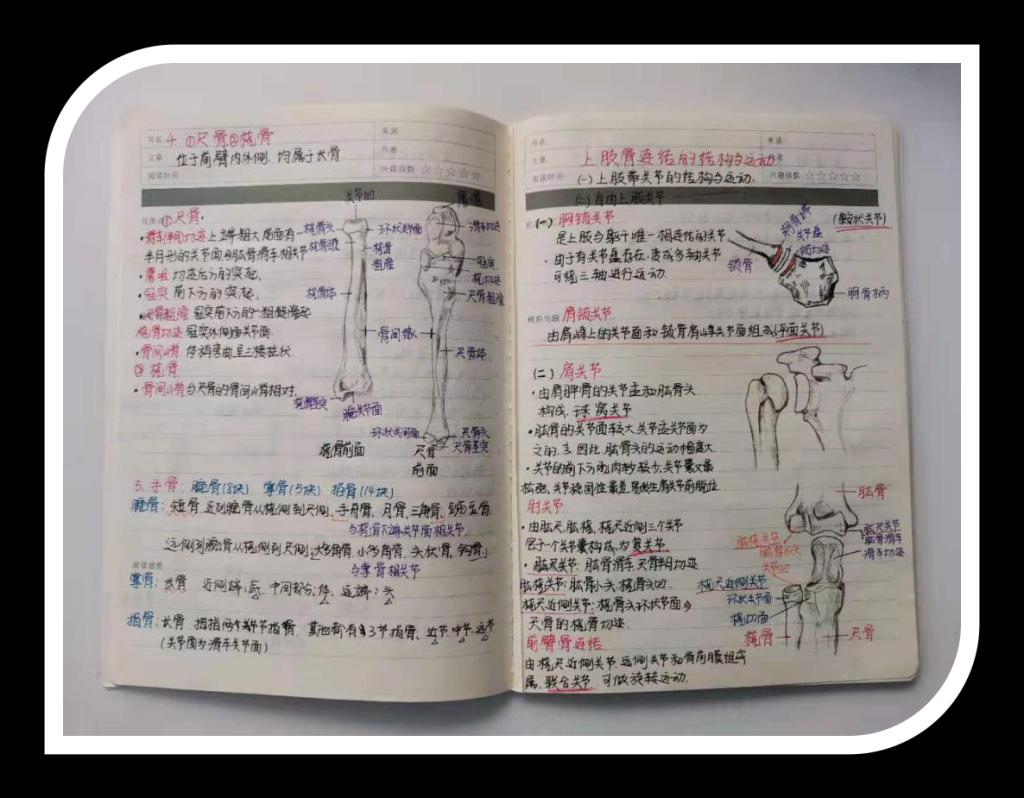 书名 4. ①尺骨②桡骨
来源
文章 位于前臂内外侧.均属于长骨
作者
阅读时间
兴趣指数 ☆☆☆☆☆
①尺骨.
·滑车(半月)切迹 上端粗大前面有一
半月形的关节面与肱骨滑车相关节
·鹰咀 切迹后方的突起.
·冠突 前下方的突起.
·尺骨粗隆 冠突前下方的一粗糙隆起
桡骨切迹 冠突外侧缘关节面.
·骨间嵴. 体稍弯曲呈三棱柱状.
② 桡骨.
·骨间嵴 与尺骨的骨间嵴相对.
关节凹
桡骨头
环状关节面
桡骨颈
桡骨粗隆
桡骨体
骨间缘
桡骨茎突
腕关节面
桡骨前面
滑车切迹
冠突
桡切迹
尺骨粗隆
尺骨体
环状关节面
尺骨头
尺骨茎突
尺骨前面
5. 手骨: 腕骨(8块) 掌骨(5块) 指骨(14块)
腕骨: 短骨 近列腕骨从桡侧到尺侧. 手舟骨、月骨、三角骨、豌豆骨.
与桡骨下端关节面相关节.
远侧列腕骨从桡侧到尺侧: 大多角骨、小多角骨、头状骨、钩骨.
与掌骨相关节
阅读感想
掌骨: 长骨 近侧端: 底. 中间部分: 体. 远端: 头
指骨: 长骨 拇指两节指骨. 其他都有3节指骨. 近节 中节 远节
(关节面为滑车关节面)
书名
来源
文章 上肢骨连结的结构与运动
阅读时间 (一)上肢带关节的结构与运动.
兴趣指数 ☆☆☆☆☆
(二)自由上肢关节
(一) 胸锁关节
(鞍状关节)
是上肢与躯干唯一相连结的关节
·由于有关节盘存在.变成多轴关节
可绕三轴进行运动.
关节盘
锁切迹
锁骨
胸骨柄
精彩句段 肩锁关节
由肩峰上的关节面和锁骨肩峰关节面组成(平面关节)
(二) 肩关节
·由肩胛骨的关节盂和肱骨头
构成. 球窝关节
·肱骨的关节面较大.关节盂关节面为
之的. 因此.肱骨头的运动幅度大
·关节的前下方肌肉较少.关节囊又最
松弛.关节稳固性最差.易发生肩关节前脱位.
肘关节
·由肱尺.肱桡.桡尺近侧三个关节
居于一个关节囊构成.为复关节.
·肱尺关节: 肱骨滑车.尺骨半月切迹
肱桡关节: 肱骨小头.桡骨头凹.
桡尺近侧关节: 桡骨头环状面与
尺骨的桡骨切迹.
肱骨
肱尺关节
肱骨滑车
滑车切迹
肱桡关节
肱骨小头
关节凹
桡尺近侧关节
环状关节面
桡切迹
桡骨
尺骨
前臂骨连结
由桡尺近侧关节.远侧关节和骨间膜组成
属. 联合关节 可做旋转运动.